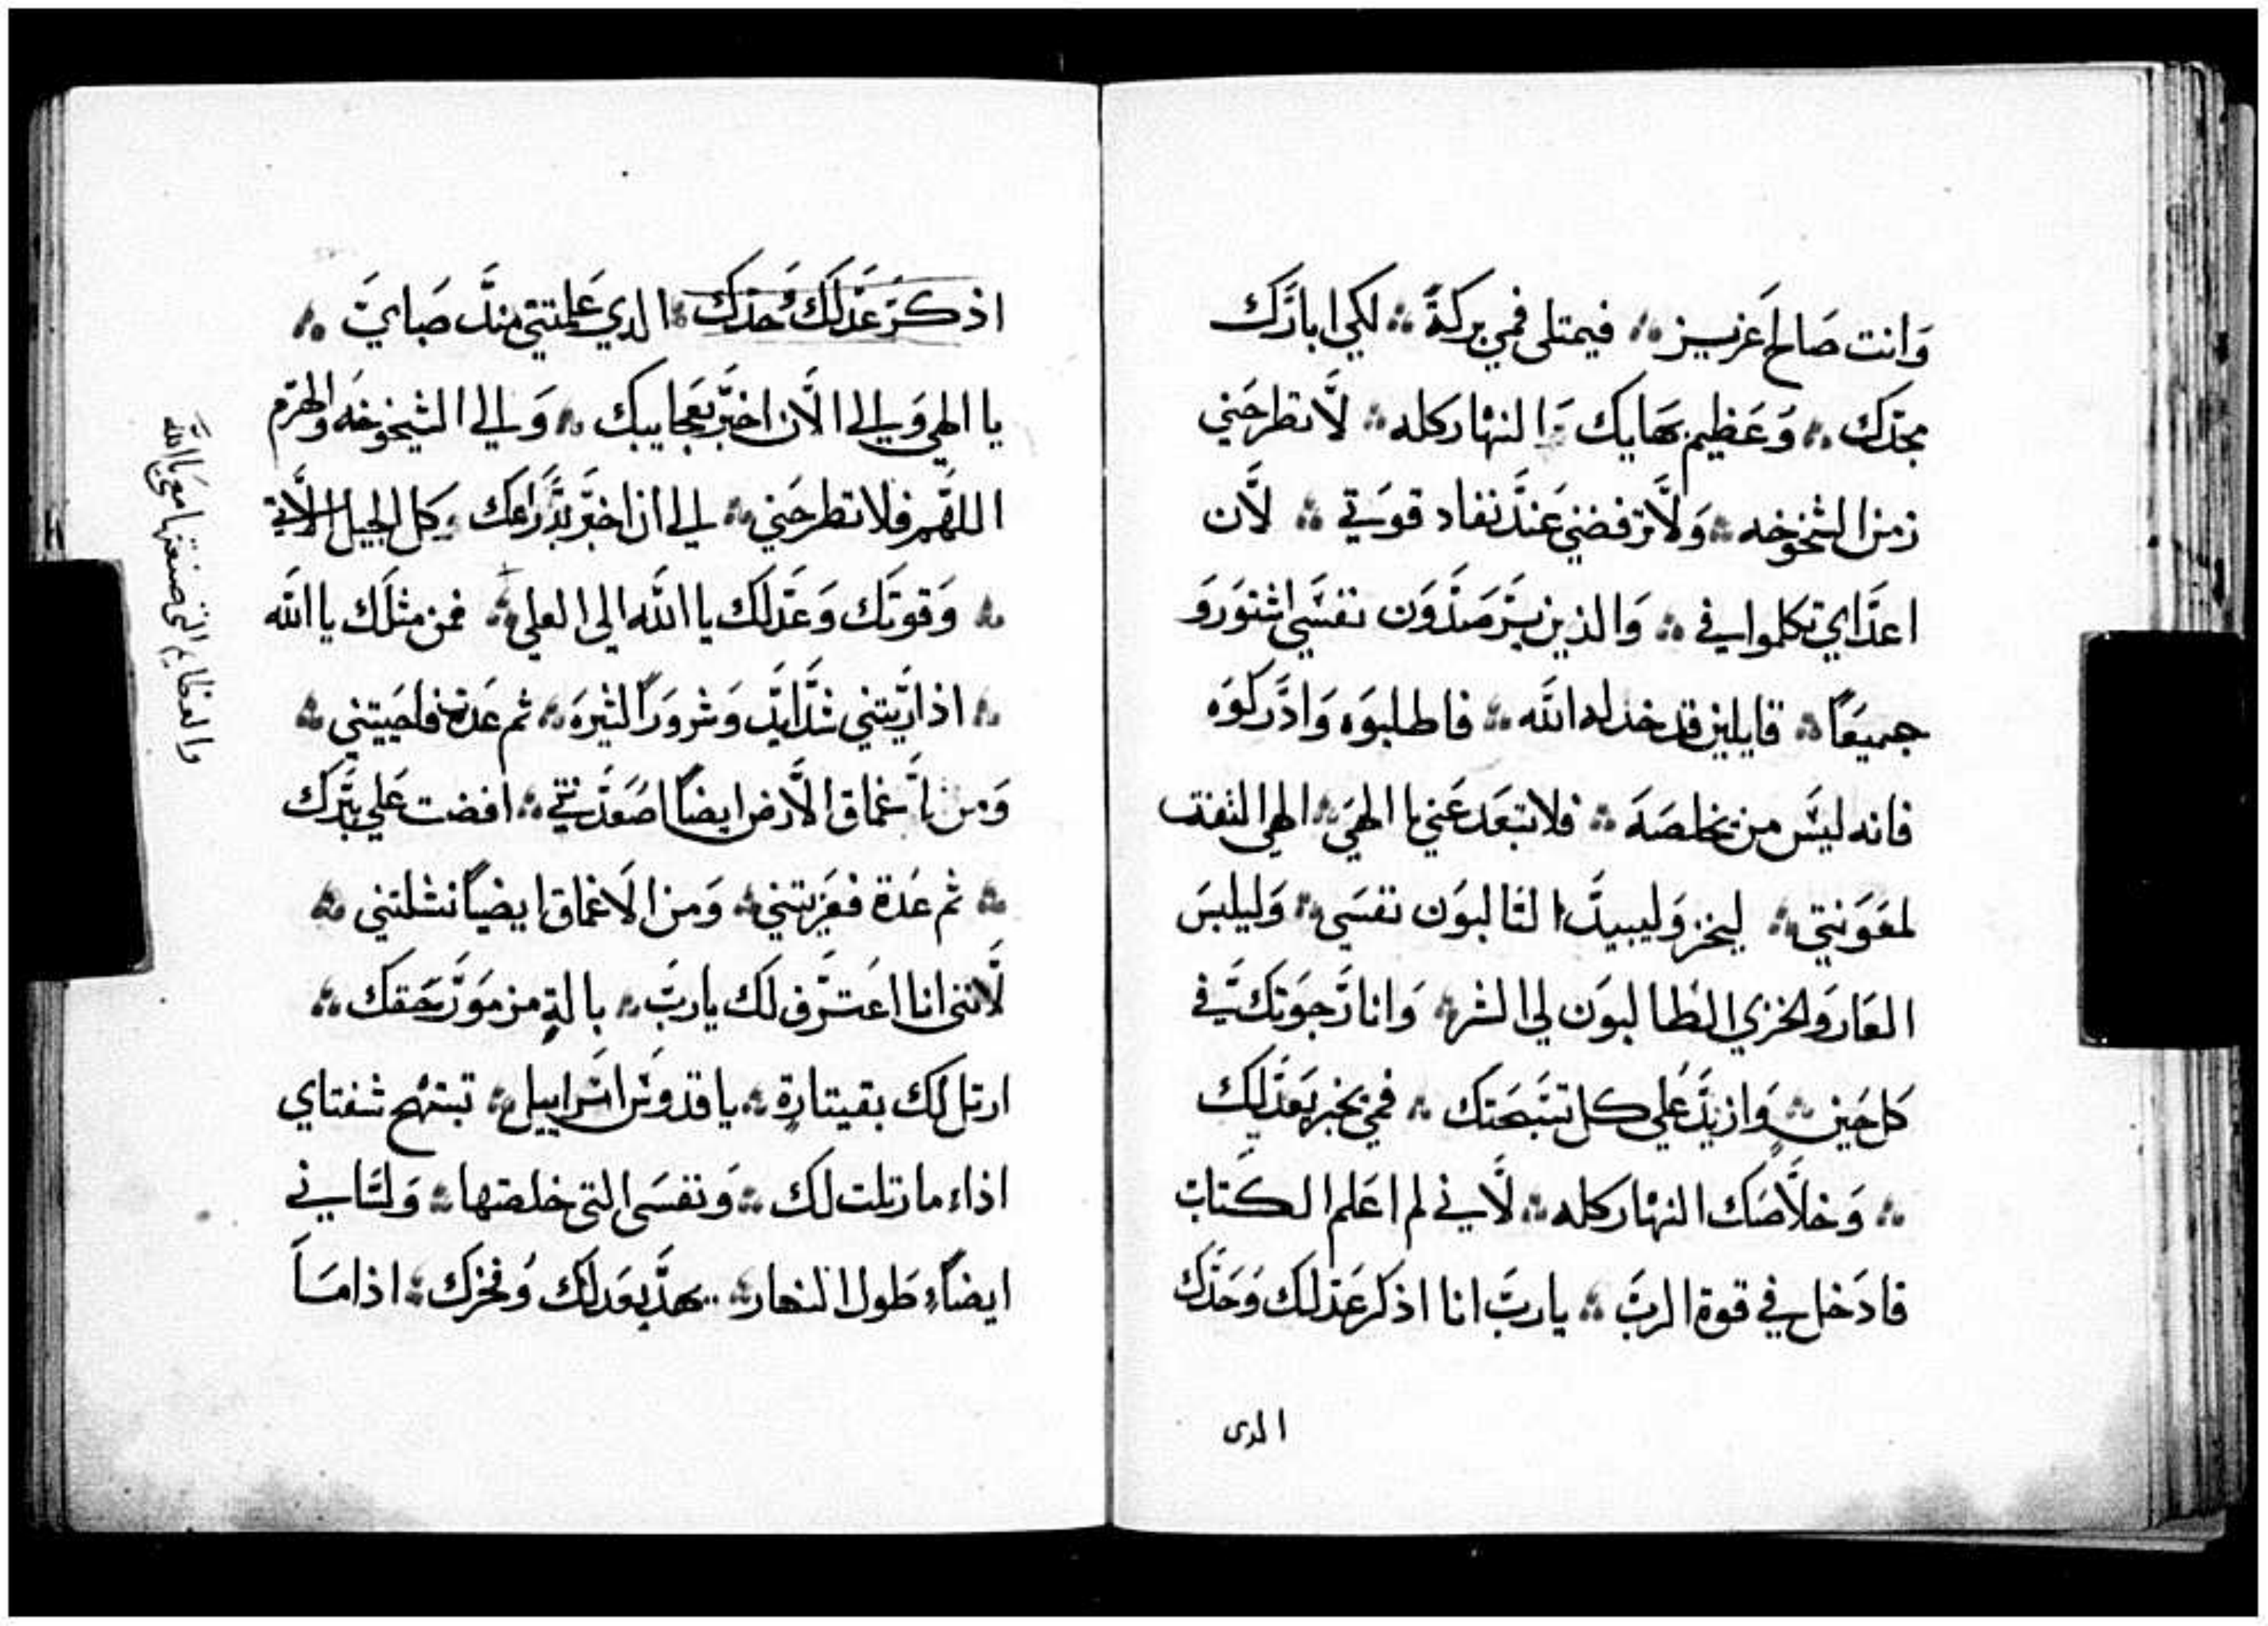 وانت صالح عزيز ܀ فيمتلى فمي بركة ܀ لكي ابارك
مجدك ܀ وعظيم بهايك ܀ النهار كله ܀ لا تطرحني
زمن الشخوخه ܀ ولا ترفضني عند نفاد قوتي ܀ لان
اعداي تكلموا في ܀ والذين يترصدون نفسي اشتورو
جميعا ܀ قايلين قد خدله الله ܀ فاطلبوه وادركوه
فانه ليس من يخلصه ܀ فلا تبعد عني يا الهي ܀ الهي التفت
لمعونتي ܀ ليخز وليبيد ا لتالبون نفسي ܀ وليلبس
العار والخزي الطالبون لي الشر ܀ وانا رجوتك في
كل حين ܀ وازيد علي كل تسبحتك ܀ فمي يخبر بعدلك
܀ وخلاصك النهار كله ܀ لاني لم اعلم الكتاب
فادخل في قوة الرب ܀ يا رب انا اذكر عدلك وحدك
الدى
اذكر عدلك وحدك ܀ الدي علمتني مند صباي ܀
يا الهي والي الان اخبر بعجايبك ܀ والي الشيخوخه والهرم
اللهم فلا تطرحني ܀ الي ان اخبر بدراعك ܀ كل الجيل الاتي
܀ وقوتك وعدلك يا الله الي العلي ܀ فمن مثلك يا الله
܀ اذ اريتني شدايد وشرورا كثيره ܀ ثم عدت فاحييتني ܀
ومن اغماق الارض ايضا اصعدتني ܀ افضت علي برك
܀ ثم عدة فعزيتني ܀ ومن الاغماق ايضا نشلتني ܀
لانني انا اعترف لك يا رب ܀ بالة مزمور حقك ܀
ارتل لك بقيتارة ܀ يا قدوس اسراييل ܀ تبتهج شفتاي
اذاء ما رتلت لك ܀ ونفسي التي خلصتها ܀ ولساني
ايضا طول النهار ܀ يهد بعدلك وفخرك ܀ اذا ما
والعظايم التي صنعتها معي يا الله